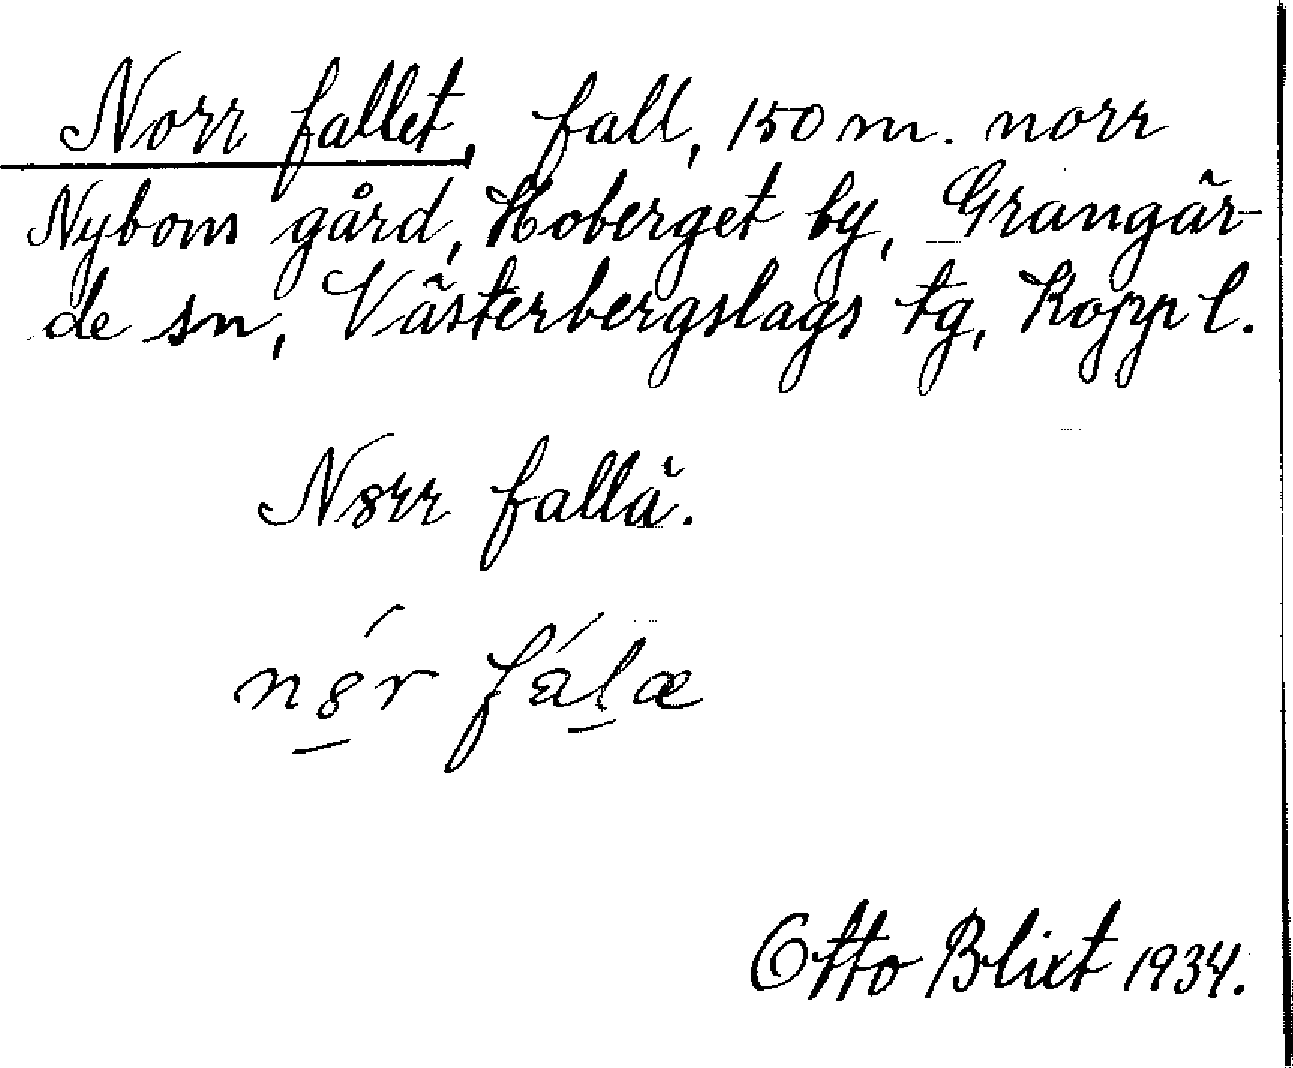 Norr fallet, fall, 150 m. norr
Nyboms gård, Hoberget by, Grangär-
de sn, Västerbergslags tg, Kopp l.
Nørr fallä.
nǿr fálæ
Otto Blixt 1934.